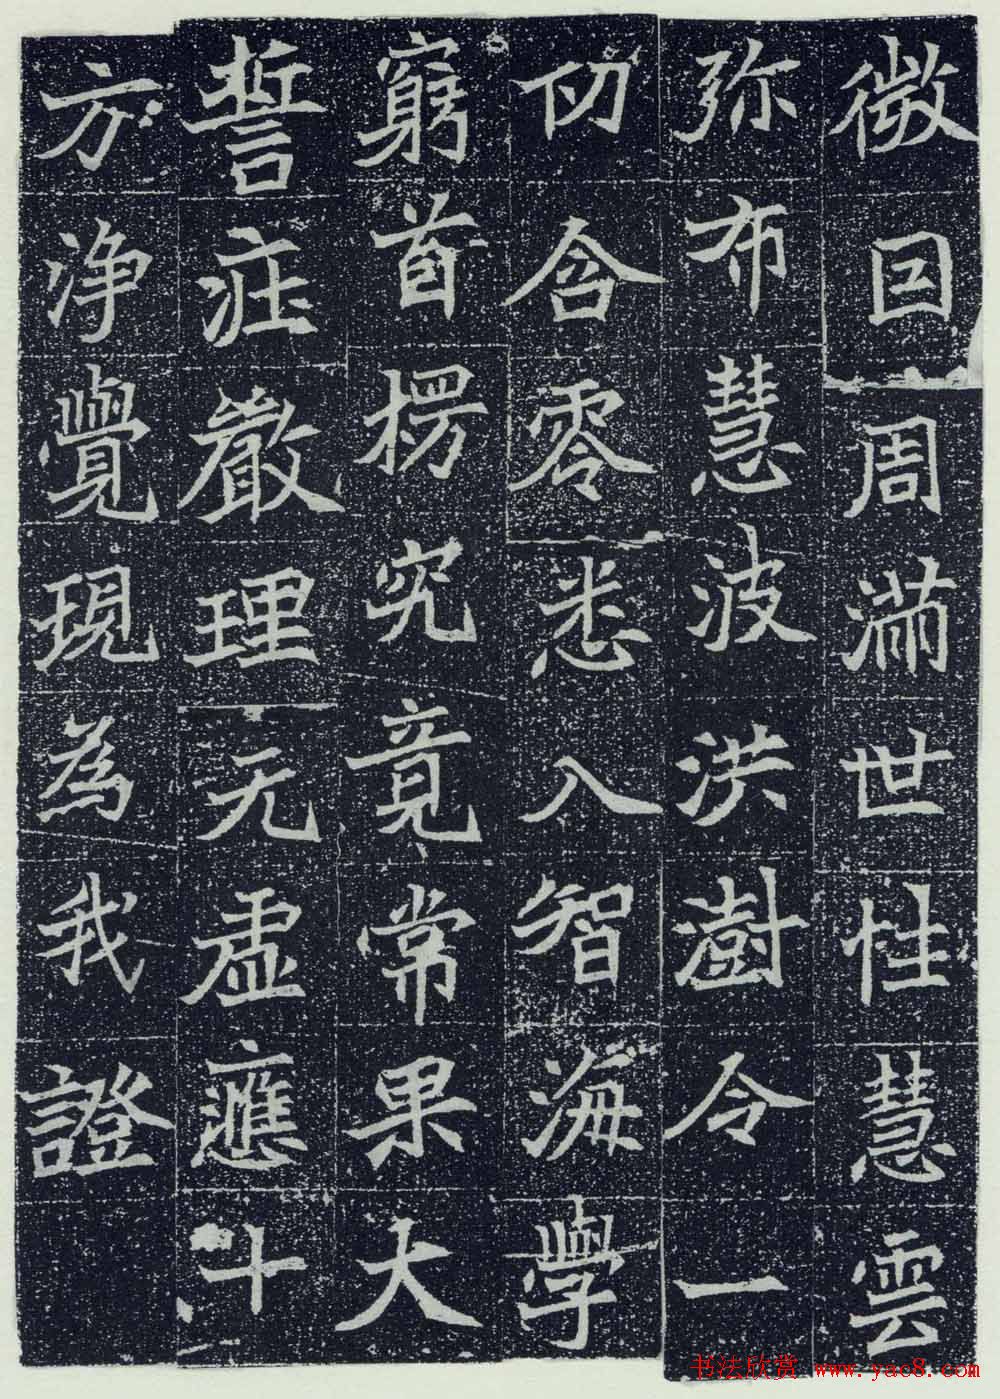 微因周滿世性慧雲
弥布慧波洪澍令一
切含零悉入智海學
窮首楞究竟常果大
誓庄嚴理无虛應十
方浄覺現為我證
书法欣赏 www.yac8.com